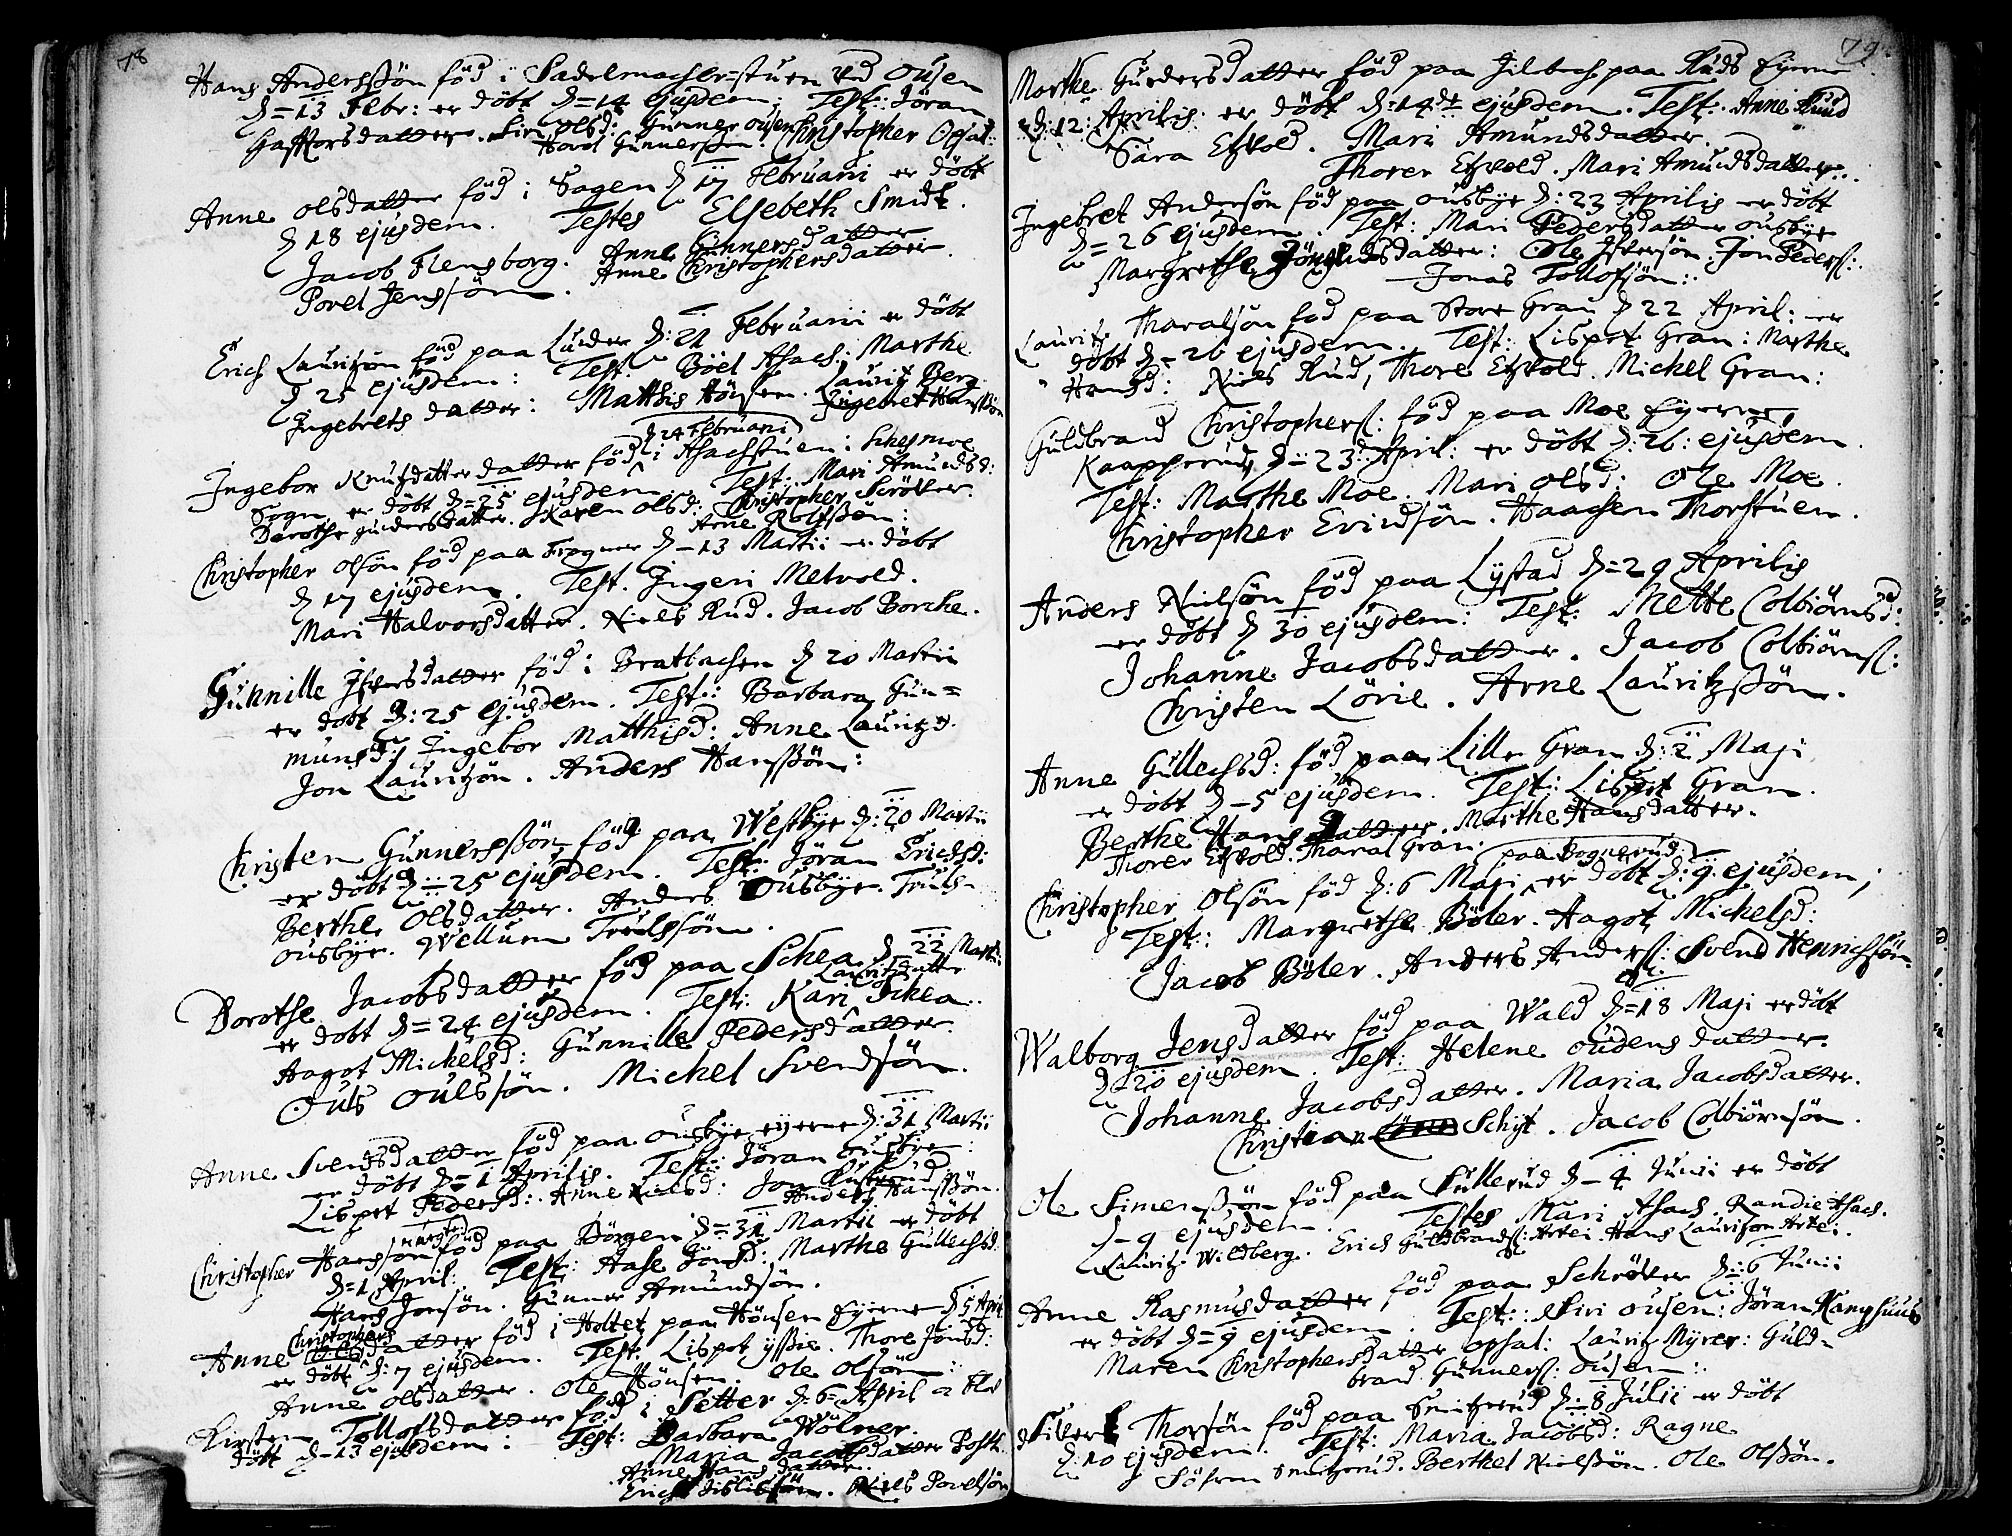 78
Hans Anderssøn fød i Sadelmacher=stuen ved Ousen
d=13 Febr: er døbt d=14 ejusdem; Test: Jöran
Haffvorsdatter. Siri olsd: Gunner ousen Christopher Opsal:
Havor Gunnerssøn.
Anne olsdatter fød i Sagen d 17 Februarii er døbt
d 18 ejusdem. Testes Elsebeth Smidt.
Jacob Flensborg. Anne Gunnersdatter
Povel Jenssøn. Anne Christophersdatter.
Erich Lauritzøn fød paa Lunder d: 21 Februarii er døbt
d 25 ejusdem: Test: Böel Asach: Marthe
Ingebrets datter: Matthis Hönsen. Lauritz Berg
Ingebret Hanssøn
d 24 Februarii
Ingebor Knutzdatter datter fød i Asachstuen i Schesmoe
Sogn er døbt d=25 ejusdem. Test: Mari Amundsd:
Dorothe gundersdatter. Karen olsd: Christopher Scröver.
Arne Rolfssøn:
Christopher olsøn fød paa Frogner d-13 Martii er døbt
d 17 ejusdem. Test. Ingeri Metvold.
Mari Halvorsdatter. Niels Rud. Jacob Borche.
Gunnille Ifversdatter fød i Bratbachen d 20 Martii
er døbt d: 25 ejusdem. Test: Barbara Gun=
munsd: Ingebor Matthisd: Anne Lauritzd.
Jon Lauritzøn. Anders Hanssøn:
Christen Gunnerssøn fød paa Westbye d: 20 Martii
er døbt d: 25 ejusdem. Test: Jöran Erichsd:
Berthe olsdatter. Anders Ousbye. Truls
ousbye. Wellum Trulssøn.
Dorothe Jacobsdatter fød paa Schea d 22 Martii
Lauritzdatter
er døbt d=24 ejusdem. Test: Kari Schea.
Aagot Michelsd: Gunnille Pedersdatter.
Ouls oulssøn. Michel Svendsøn.
Anne Svensdatter fød paa ousbye eyerne d: 31 Martii
er døbt d=1 Aprilis. Test: Jöran ousbye:
Lispet Pedersd: Anne Nielsd: Jon Rustrud
Anders Hanssøn.
Christopher Hanssøn fød paa Börgen d=31 Martii er døbt
d=1 April: Test: Aase Jönsd: Marthe Gullechsd:
Hans Jonsøn. Gunner Amundsøn.
Anne Christophersdatter fød i Holtet paa Hönsen Eyerne d 5 April
er døbt d: 7 ejusdem. Test: Lispet yssie. Thore Jonsd:
Anne olsdatter. Ole Hönsen. Ole olsøn:
Kirsten Tollofsdatter fød i Setter d: 6= April
døbt d-13 ejusdem: Test: Barbara Wölner.
Maria Jacobsdatter Post.
Anne Hans datter.
Erich Niels Povelsøn
79.
Marthe Gundersdatter fød paa paa Ruds Eyerne
d: 12: Aprilis er døbt d: 14 dt ejusdem. Test: Anne Rud
Sara Etzvold. Mari Amundsdatter.
Thorer Etzvold. Mari Amundsdatter.
Ingebret Andersøn fød paa ousbye d: 23 Aprilis er døbt
d=26 ejusdem. Test: Mari Pedersdatter ousbye
Margrethe datter: Ole Ifversøn. Jon Peders:
Jonas Tollofsøn:
Lauritz Tharalsøn fød paa Store Gran d 22 April: er
døbt d=26 ejusdem. Test: Lispet Gran: Marthe
Hansd: Niels Rud, Thore Etzvold. Michel Gran:
Guldbrand Christophers: fød paa Moe Eyerne,
Kaapperud, d=23 April: er døbt d: 26: ejusdem.
Test: Marthe Moe. Mari olsd: Ole Moe.
Christopher Erindsøn. Haachen Thorstuen.
Anders Nielsøn fød paa Lystad d=29 Aprilis
er døbt d 30 ejusdem: Test: Mette Colbiörnsd:
Johanne Jacobsdatter. Jacob Colbiörns:
Christen Lörie. Arne Lauritzssøn.
Anne Gullechsd: fød paa Lille Gran d: 2 Maji
er døbt d-5 ejusdem. Test: Lispet Gran.
Berthe Hansdatter. Marthe Hansdatter.
Thorer Etzvold. Tharal Gran.
paa Bognerud:
Christopher olsøn fød d: 6 Maji er døbt d: 9 ejusdem;
Test: Margrethe Böler. Aagot Michelsd:
Jacob Böler. Anders Anders: Svend Henrichsøn.
Walborg Jensdatter fød paa Wald d=18 Maji er døbt
d 20 ejusdem. Test: Helene oudens datter.
Johanne Jacobsdatter. Maria Jacobsdatter.
Christian Schyt. Jacob Colbiörnsøn.
Ole Simenssøn fød paa Sullerud d-4 Junii er døbt
d-9 ejusdem. Testes Mari Asach. Randie Asach.
Lauritz Wildberg. Erich Guldbrands: Artei. Hans Lauritzøn Artei:
Anne Rasmusdatter fød paa Schröver d: 6 Junii
er døbt d=9 ejusdem. Test: Siri ousen: Jöran Kamphuus
Maren Christophersdatter opsal: Lauritz Myrer: Guld-
brand Gunners: ousen:
Sivert Thorsøn fød paa Smitzrud d: 8 Julii er døbt
d: 10 ejusdem. Test: Maria Jacobsd: Ragne
Söfren Smitzrud. Berthel Nielssøn. Ole Olssøn.